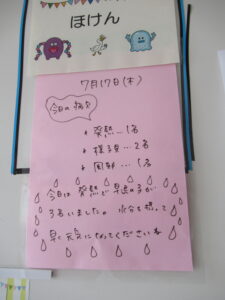 ほけん
7月17日(木)
今日の病気
・発熱…1名
・様子見…2名
・風邪…1名
今日は発熱で早退の子が
3名いました。水分を摂って
早く元気になってくださいね